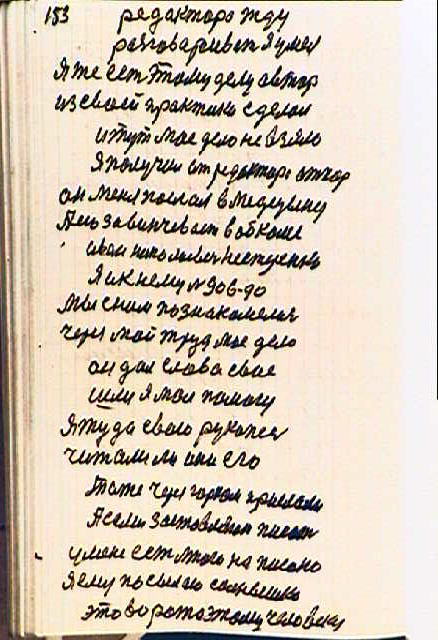 153 редактора жду
разговариват я умел
Я те ест этому делу автор
из своей практики сделал
и тут мое дело не взяло
Я получил от редактора отпор
он меня послал в медецину
Я к нему № 906-90
мы сним познакомелся
через мой труд мое дело
он дал слова свое
шли я мол помогу
Я туда свою рукопес
читали ли они его
Тоже через горком прислали
Я сели заставляют писат
у мене ест много на писано
Я ему посылаю
это ворота этому человеку